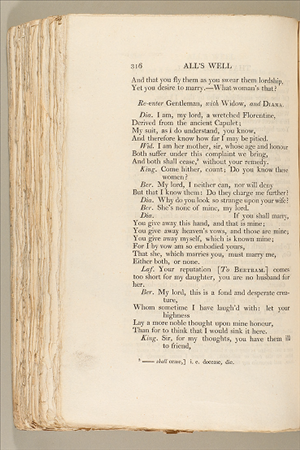 316 ALL'S WELL
And that you fly them as you swear them lordship,
Yet you desire to marry.—What woman's that?
Re-enter Gentleman, with Widow, and DIANA.
Dia. I am, my lord, a wretched Florentine,
Derived from the ancient Capulet;
My suit, as i do understand, you know,
And therefore know how far I may be pitied.
Wid. I am her mother, sir, whose age and honour
Both suffer under this complaint we bring,
And both shall cease,⁸ without your remedy.
King. Come hither, count; Do you know these
women?
Ber. My lord, I neither can, nor will deny
But that I know them: Do they charge me further?
Dia. Why do you look so strange upon your wife?
Ber. She's none of mine, my lord.
Dia. If you shall marry,
You give away this hand, and that is mine;
You give away heaven's vows, and those are mine;
You give away myself, which is known mine;
For I by vow am so embodied yours,
That she, which marries you, must marry me,
Either both, or none.
Laf. Your reputation [To BERTRAM.] comes
too short for my daughter, you are no husband for
her.
Ber. My lord, this is a fond and desperate crea-
ture,
Whom sometime I have laugh'd with: let your
highness
Lay a more noble thought upon mine honour,
Than for to think that I would sink it here.
King. Sir, for my thoughts, you have them ill
to friend,
—— shall cease,] i. e. decease, die.